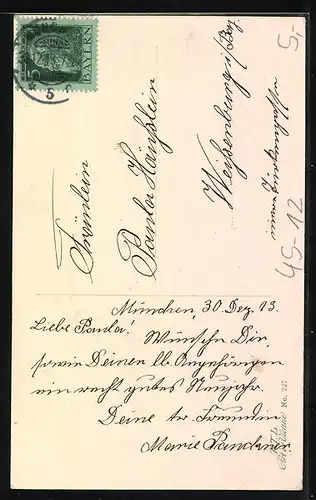 BAYERN
5
Fräulein
Paula Häußlein
Weißenburg i/Bay.
innere
München, 30 Dez. 13.
Liebe Paula!
Wünsche Dir,
sowie Deinen lb. Angehörigen
ein recht gutes Neujahr.
Deine tr. Freundin
Marie
No. 237
5,-
45-12